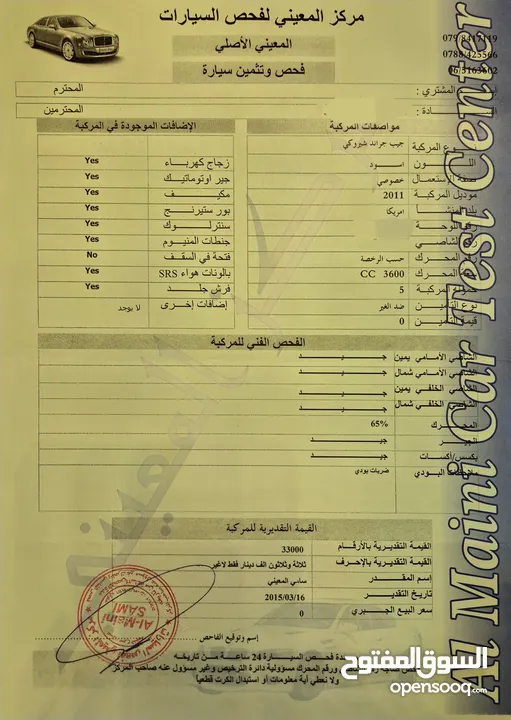 مركز المعيني لفحص السيارات
المعيني الأصلي
فحص وتثمين سيارة
079/8417119
0788/425566
06/5163602
المشتري : المحترم
المحترمين
مواصفات المركبة
ع المركبة جيب جراند شيروكي
اللـــون اســود
صفة الاستعمال خصوصي
موديل المركبة 2011
امريكا
الشاصي
المحرك حسب الرخصة
المحرك 3600 CC
المركبة 5
نوع التأمين ضد الغير
قيمة التأمين 0
الإضافات الموجودة في المركبة
زجاج كهرباء Yes
جير اوتوماتيك Yes
مكيف Yes
بور ستيرنج Yes
سنترلوك Yes
جنطات المنيوم Yes
فتحة في السقف No
بالونات هواء SRS Yes
فرش جلد Yes
إضافات إخرى لا يوجد
الفحص الفني للمركبة
الشاصي الأمامي يمين جيــد
الشاصي الأمامي شمال جيــد
الشاصي الخلفي يمين جيــد
الشاصي الخلفي شمال جيــد
المحرك 65%
الجير جيــد
بكسس/أكسات جيــد
ملاحظات البودي ضربات بودي
القيمة التقديرية للمركبة
القيمة التقديرية بالأرقام 33000
القيمة التقديرية بالإحرف ثلاثة وثلاثون الف دينار فقط لاغير
إسم المقدر سامي المعيني
تاريخ التقدير 2015/03/16
سعر البيع الجبري 0
إسم وتوقيع الفاحص
Al-Maini
SAMI
دة فحص السيارة 24 ساعة من تاريخه
ورقم المحرك مسؤولية دائرة الترخيص وغير مسؤول عنه صاحب المركز
ولا نعطي أية معلومات أو استبدال الكرت قطعياً
Al Maini Car Test Center
السوق المفتوح
opensooq.com